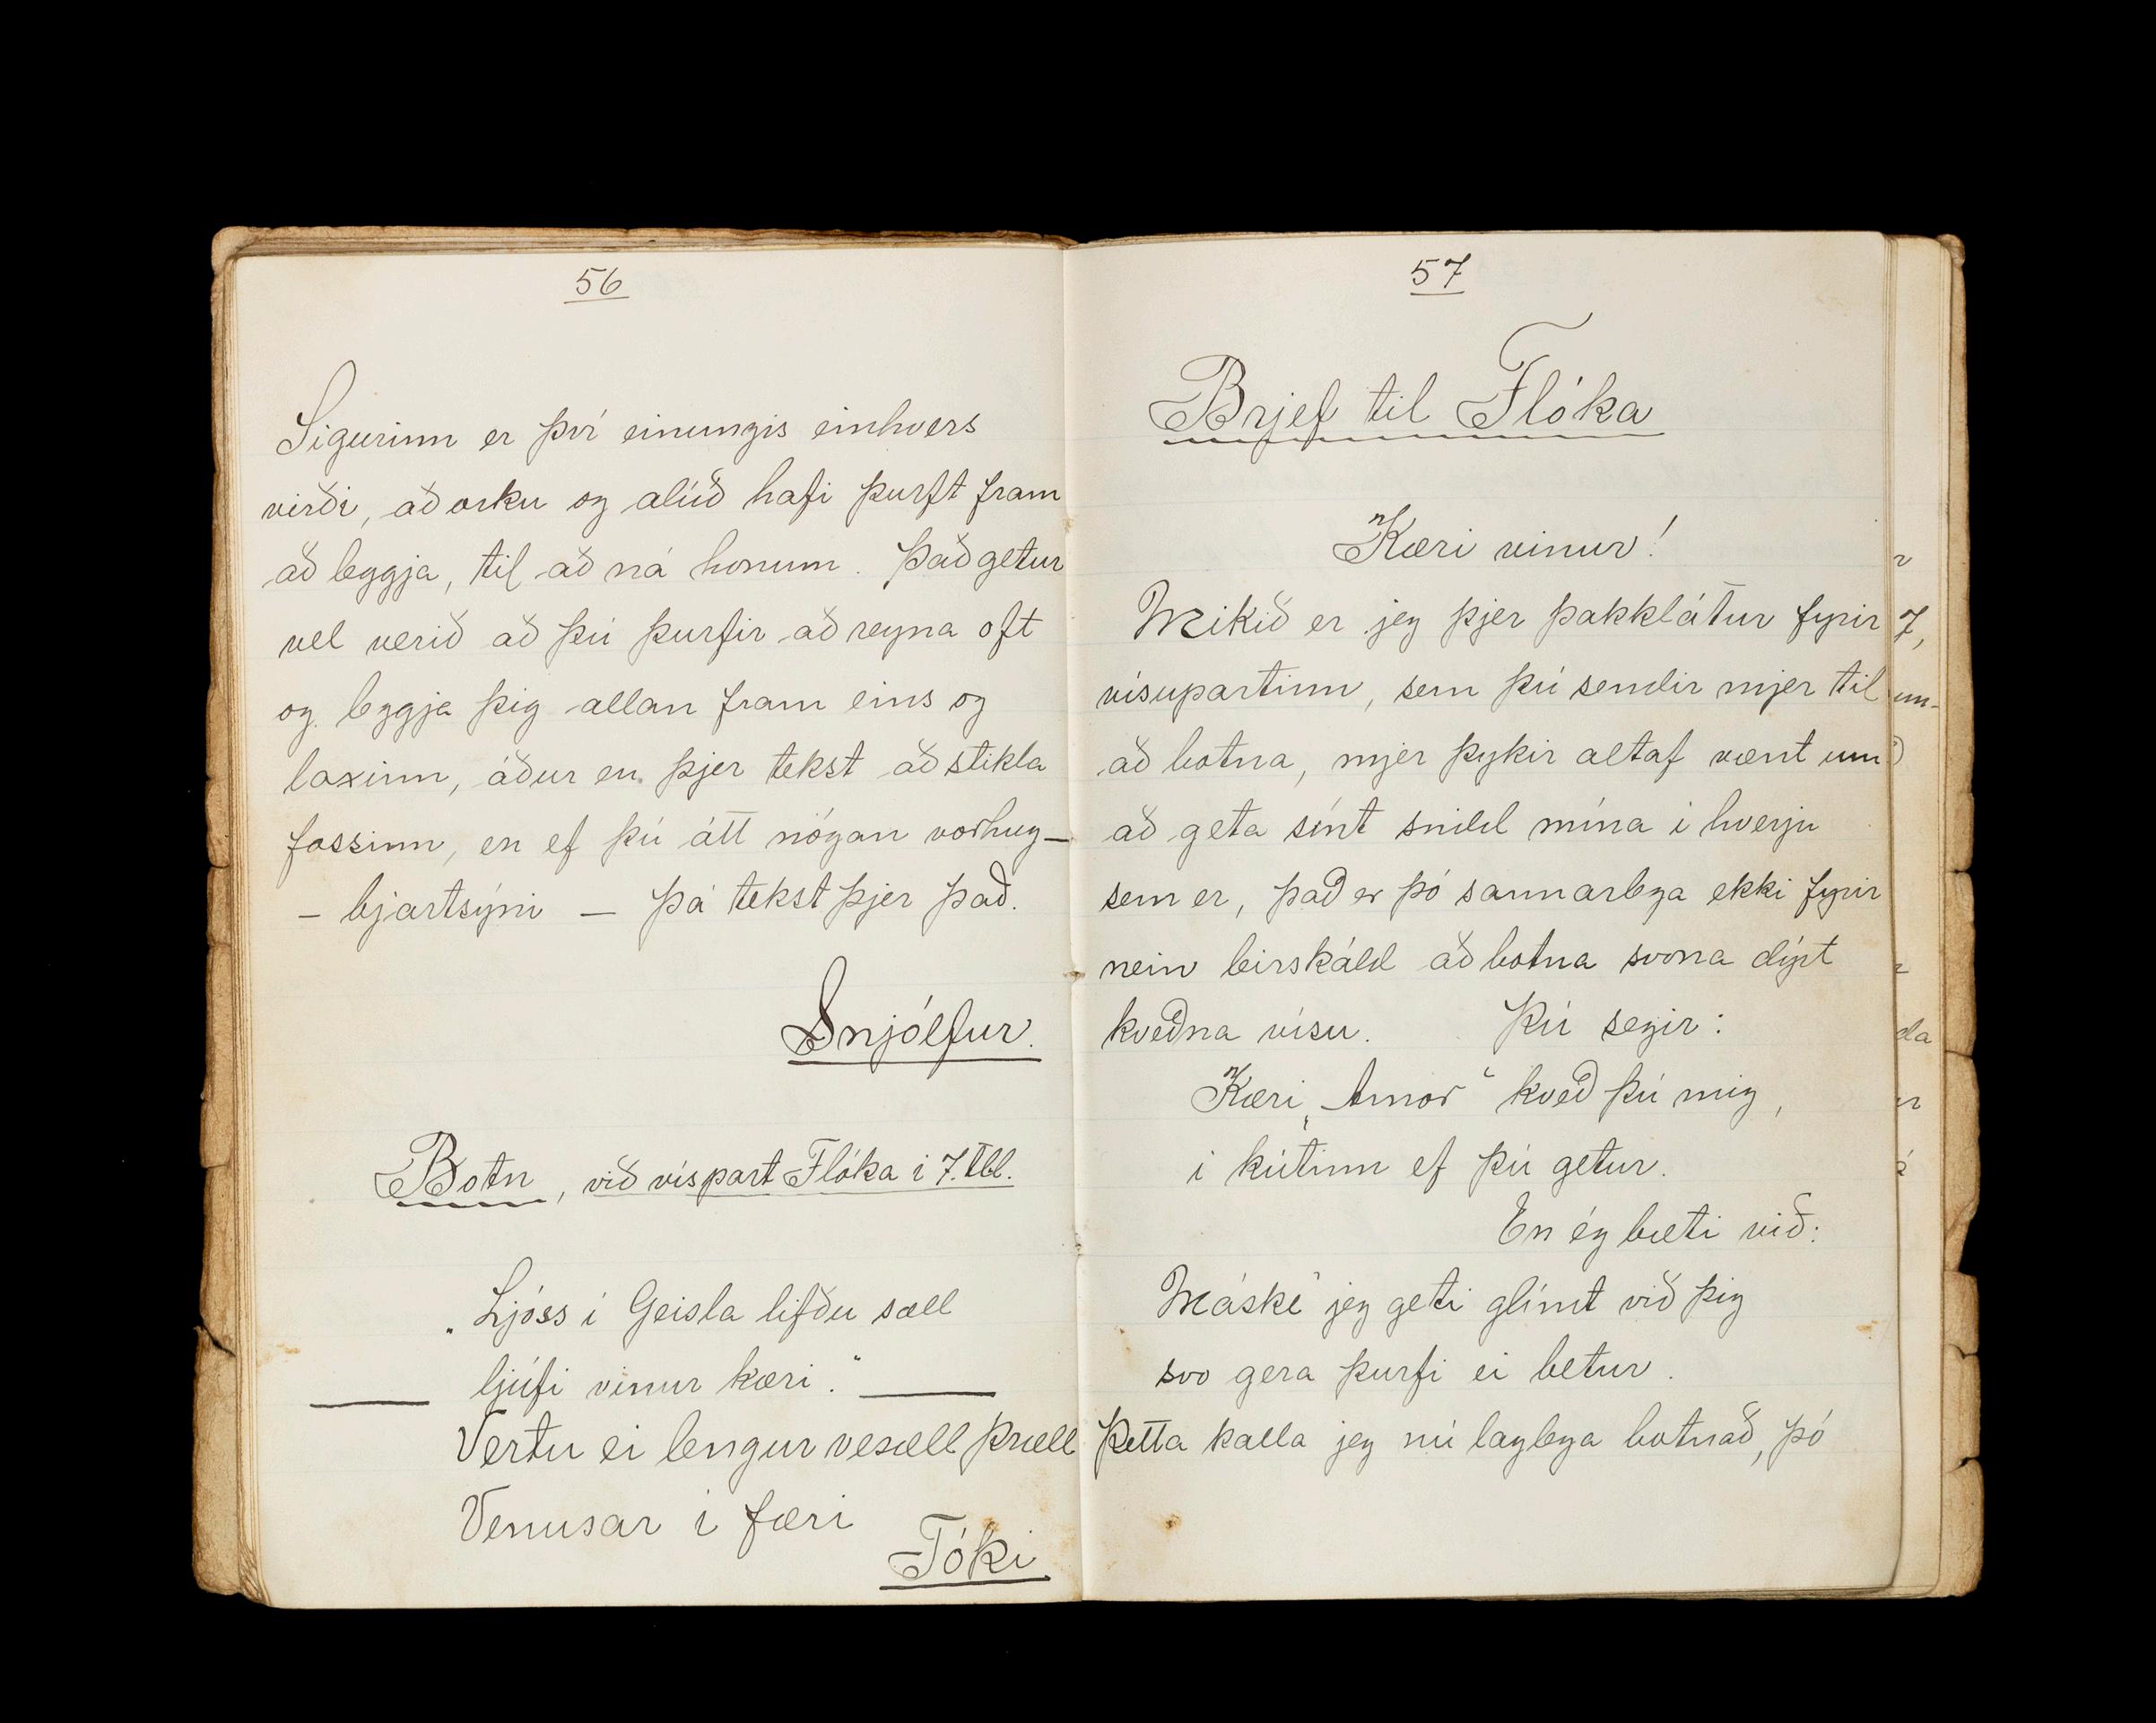 56
Sigurinn er því einungis einhvers
virði, að orku og alúð hafi þurft fram
að leggja, til að ná honum. Það getur
vel verið að þú þurfir að reyna oft
og leggja þig allan fram eins og
laxinn, áður en þjer tekst að stikla
fossinn, en ef þú átt nógan vorhug –
– bjartsýni – þá tekst þjer það.
Snjólfur.
Botn, við víspart Flóka í 7. tbl.
„Ljóss í Geisla lifðu sæll
ljúfi vinur kæri."
Vertu ei lengur vesæll þræll
Venusar í færi
Tóki
57
Brjef til Flóka
Kæri vinur!
Mikið er jeg þjer þakklátur fyrir
vísupartinn, sem þú sendir mjer til
að botna, mjer þykir altaf vænt um
að geta sínt snild mína í hverju
sem er, það er þó sannarlega ekki fyrir
nein leirskáld að botna svona dýrt
kveðna vísu. Þú segir:
Kæri „Amor" kveð þú mig,
í kútinn ef þú getur.
En ég bæti við:
Máske jeg geti glímt við þig
svo gera þurfi ei betur.
Þetta kalla jeg nú laglega botnað, þó